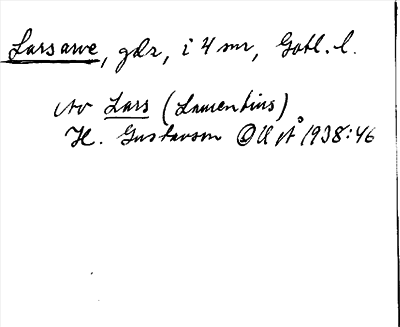 Larsarve, gdr, i 4 snr, Gotl. l.
Av Lars (Laurentius)
H. Gustavson OUÅ 1938:46